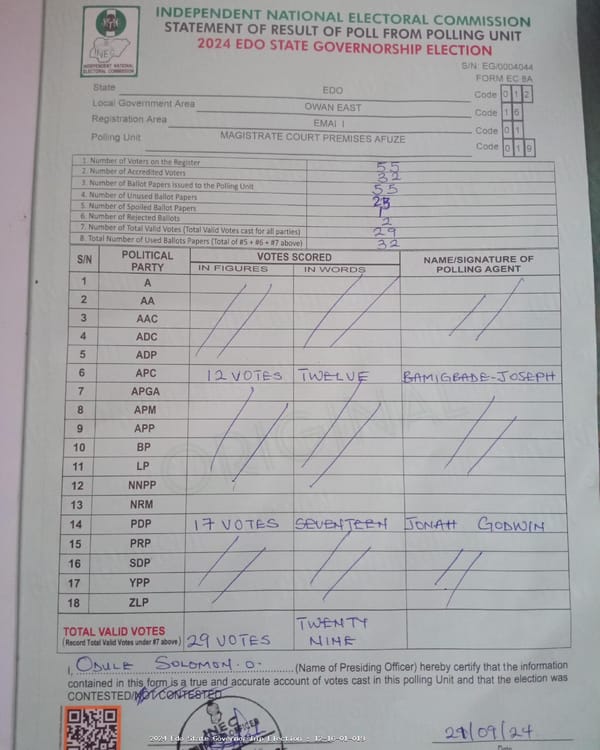 INDEPENDENT NATIONAL ELECTORAL COMMISSION
STATEMENT OF RESULT OF POLL FROM POLLING UNIT
2024 EDO STATE GOVERNORSHIP ELECTION
INEC
INDEPENDENT NATIONAL
ELECTORAL COMMISSION
S/N: EG/0004044
FORM EC 8A
State EDO Code 0 1 2
Local Government Area OWAN EAST Code 1 6
Registration Area EMAI I Code 0 1
Polling Unit MAGISTRATE COURT PREMISES AFUZE Code 0 1 9
1. Number of Voters on the Register 55
2. Number of Accredited Voters 32
3. Number of Ballot Papers Issued to the Polling Unit 55
4. Number of Unused Ballot Papers 23
5. Number of Spoiled Ballot Papers 1
6. Number of Rejected Ballots 2
7. Number of Total Valid Votes (Total Valid Votes cast for all parties) 29
8. Total Number of Used Ballots Papers (Total of #5 + #6 + #7 above) 32
S/N POLITICAL PARTY VOTES SCORED NAME/SIGNATURE OF POLLING AGENT
IN FIGURES IN WORDS
1 A
2 AA
3 AAC
4 ADC
5 ADP
6 APC 12 VOTES TWELVE BAMIGBADE-JOSEPH
7 APGA
8 APM
9 APP
10 BP
11 LP
12 NNPP
13 NRM
14 PDP 17 VOTES SEVENTEEN JONAH GODWIN
15 PRP
16 SDP
17 YPP
18 ZLP
ORIGINAL
TOTAL VALID VOTES 29 VOTES TWENTY NINE
(Record Total Valid Votes under #7 above)
I, ODULE SOLOMON.O. (Name of Presiding Officer) hereby certify that the information
contained in this form is a true and accurate account of votes cast in this polling Unit and that the election was
CONTESTED/NOT CONTESTED
INEC
2024 Edo State Governorship Election - 12-16-01-019
21/09/24
Date